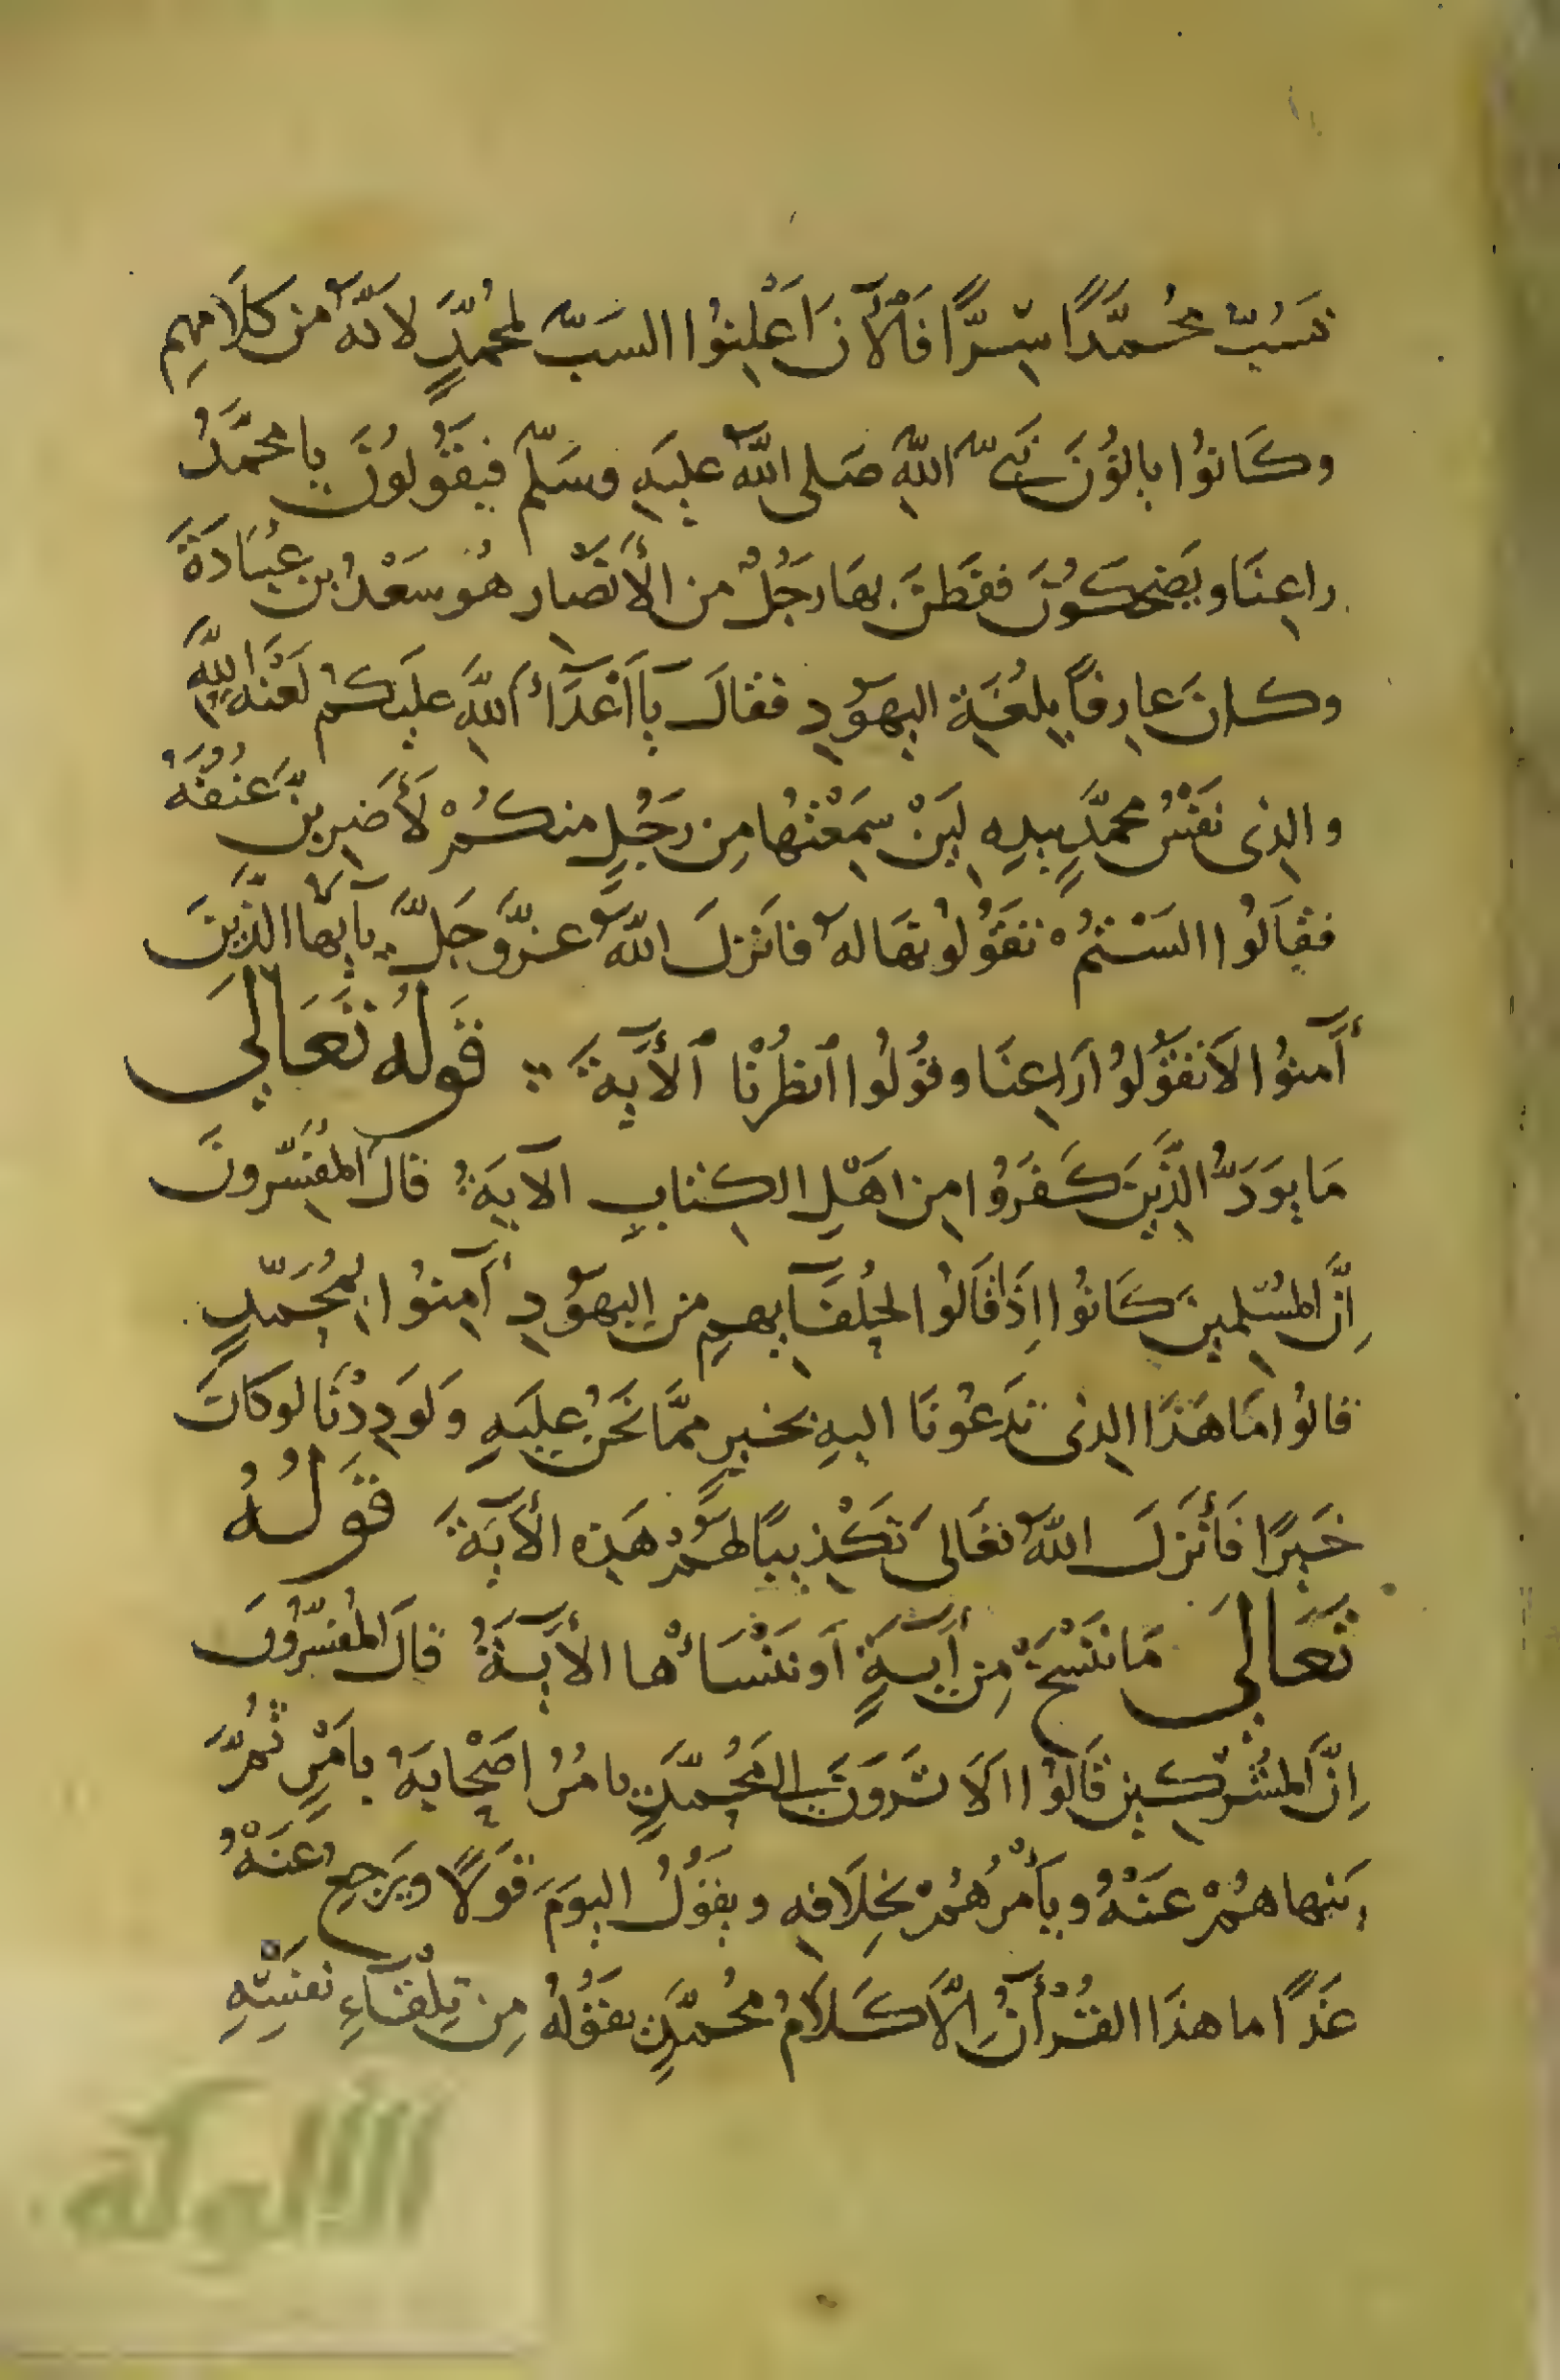 نَسُبُّ مُحَمَّدًا سِرًّا فَالْآنَ اَعْلِنُوا السَبَّ لمُحمَّدٍ لانّهُ من كَلَامِهِم
وكَانوُا ياتوُنَ نَبيّ اللّهِ صَلى اللّهُ عليَهِ وسَلّم فيقَوُلوُنَ يا محمَّدُ
راعِنَا ويَضحكوُنَ ففَطنَ بهَا رَجُلٌ من الأنصَار هُو سَعْدُ بن عُبَادَةَ
وكانَ عارِفًا بِلغُةِ اليهَوُدِ فقالَ يآ اَعْدَآءَ اللّهِ عليَكمُ لَعْنَة اللّهِ
والذِى نفَسُ محمَّدٍ بيدِهِ لئِنْ سَمِعْتُها مِن رَجُلٍ منكُمْ لَأَضرِبنَّ عُنُقَهُ
فقَالوُا السَتمُ تقَوُلوُنهَا لهُ فانَزلَ اللّهُ عزَّ وجَلَّ يآيها الذَّينَ
آمنوُا لاَ تقَوُلوُا رَاعِنَا وقوُلوُا انظُرْنا الأَيَةَ قَوَلُهُ تَعَالىَ
مَا يوَدَّ الذَّينَ كَفَروُا مِن اهَلِ الكِتابِ الآيَةُ قالَ المفُسِّرونَ
اِنَّ المسُلِمينَ كَانوُا اِذَا قالوُا لحِلُفَآيهِم من اليهَوُدِ آمِنوُا بمُحَمّدٍ
قالوُا مَا هَذَا الذِى تدَعُونَا اليهِ بخيرٍ ممَّا نَحَنُ عليَهِ ولَودِدْنَا لوكانَ
خَيرًا فَأنَزلَ اللّهُ تعَالىَ تكَذيبًا لهَمُ هَذِهِ الأيَةَ قَوَلُهُ
تَعَالىَ مَا ننَسَخْ مِن أَيةٍ اَو ننَسَأْها الأيَةُ قالَ المفسّرُونَ
اِنَّ المشُرِكينِ قَالوُا الاَ ترَونَ اليَ مُحمَّدٍ يامُرُ اصَحابَهُ بامَرٍ ثمُرَّ
ينَهاهُمْ عَنَهُ ويأَمُرُهُمْ بخِلَافهِ ويقَوُلُ اليوَمَ قَوَلًا ويَرجِعُ عَنهُ
غَدًا ما هذَا القُرأنُ الَّا كَلَامُ مُحمَّدٍ يقَوُلهُ مِن تِلقَآءِ نفَسِهِ
الألوكة